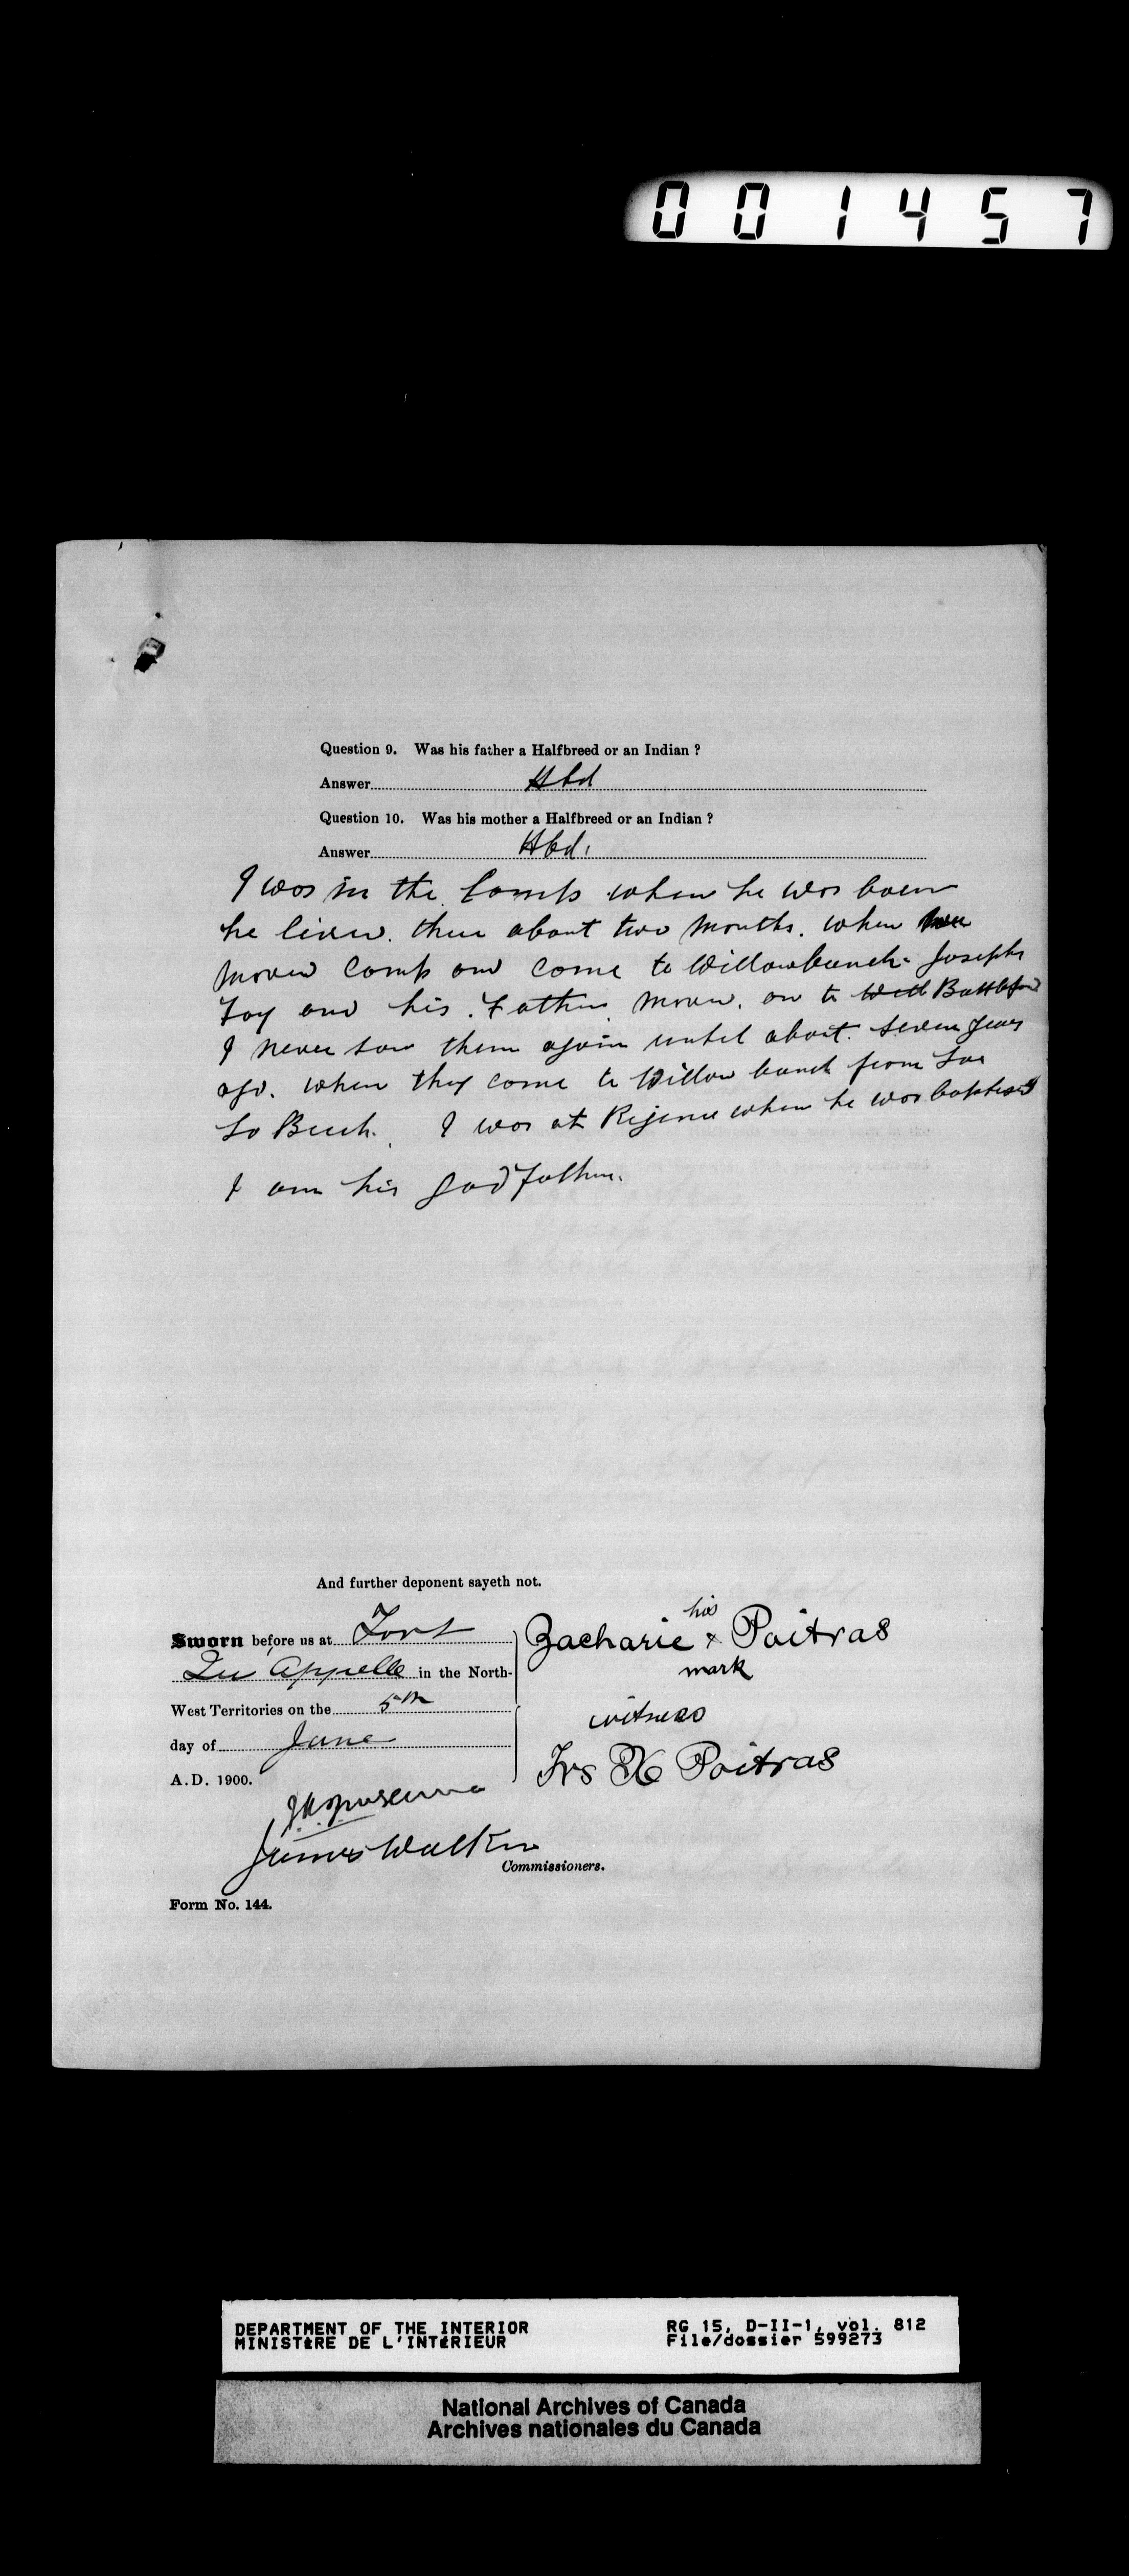 001457
Question 9. Was his father a Halfbreed or an Indian ?
Answer Hbd
Question 10. Was his mother a Halfbreed or an Indian ?
Answer Hbd.
I was in the Camp when he was born
he lived. there about two months. when
moved Camp and come to Willowbunch. Joseph
Foy and his Father moved. on to Battleford
I never saw them again until about. seven years
ago. when they come to Willow bunch from Lac
La Biech. I was at Regina when he was baptised
I am his godfather.
And further deponent sayeth not.
Sworn before us at Fort
Qu Appelle in the North-
West Territories on the 5th
day of June
A.D. 1900.
his
Zacharie x Poitras
mark
witness
Frs X Poitras
James Walker
Commissioners.
Form No. 144.
DEPARTMENT OF THE INTERIOR
MINISTÈRE DE L'INTÉRIEUR
RG 15, D-II-1, vol. 812
File/dossier 599273
National Archives of Canada
Archives nationales du Canada